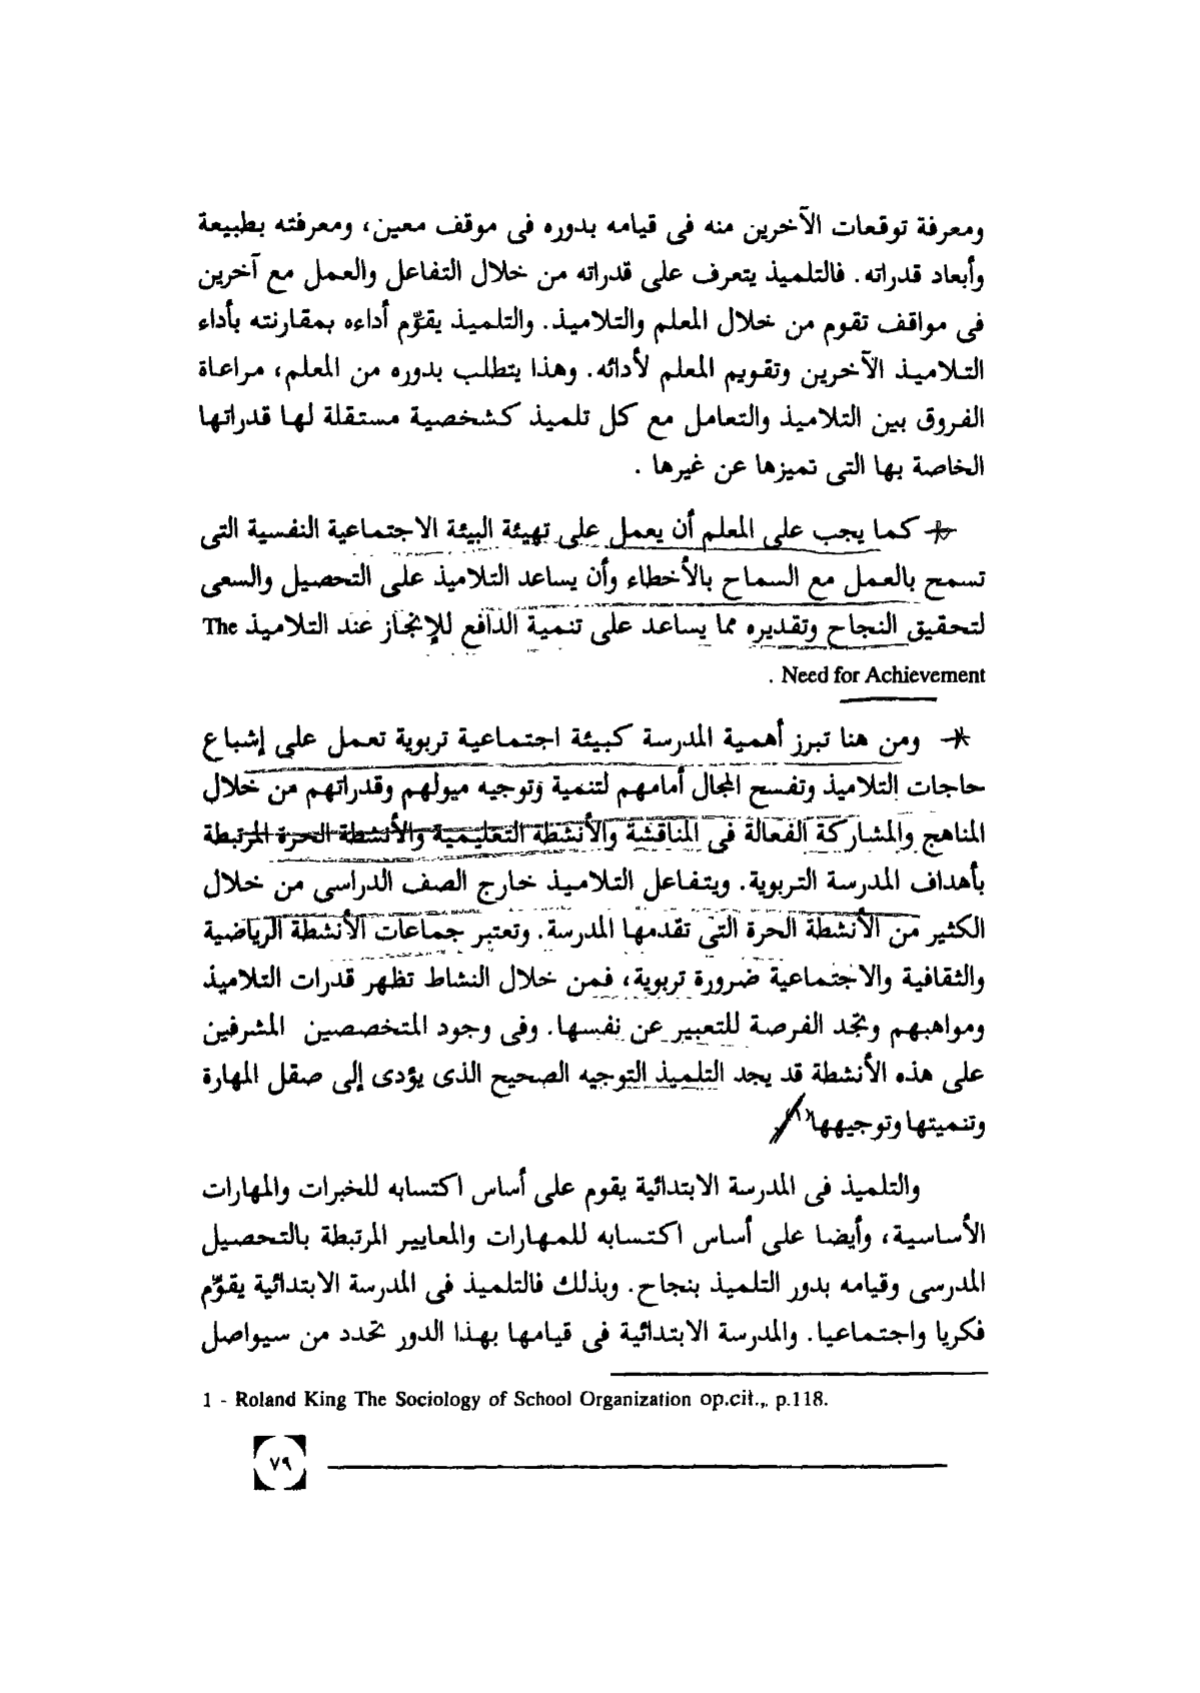 ومعرفة توقعات الآخرين منه فى قيامه بدوره فى موقف معين، ومعرفته بطبيعة
وأبعاد قدراته. فالتلميذ يتعرف على قدراته من خلال التفاعل والعمل مع آخرين
فى مواقف تقوم من خلال المعلم والتلاميذ. والتلميذ يقوّم أداءه بمقارنته بأداء
التلاميذ الآخرين وتقويم المعلم لأدائه. وهذا يتطلب بدوره من المعلم، مراعاة
الفروق بين التلاميذ والتعامل مع كل تلميذ كشخصية مستقلة لها قدراتها
الخاصة بها التى تميزها عن غيرها .
كما يجب على المعلم أن يعمل على تهيئة البيئة الاجتماعية النفسية التى
تسمح بالعمل مع السماح بالأخطاء وأن يساعد التلاميذ على التحصيل والسعى
لتحقيق النجاح وتقديره مما يساعد على تنمية الدافع للإنجاز عند التلاميذ The
Need for Achievement .
ومن هنا تبرز أهمية المدرسة كبيئة اجتماعية تربوية تعمل على إشباع
حاجات التلاميذ وتفسح المجال أمامهم لتنمية وتوجيه ميولهم وقدراتهم من خلال
المناهج والمشاركة الفعالة فى المناقشة والأنشطة التعليمية والأنشطة الحرة المرتبطة
بأهداف المدرسة التربوية. ويتفاعل التلاميذ خارج الصف الدراسى من خلال
الكثير من الأنشطة الحرة التى تقدمها المدرسة. وتعتبر جماعات الأنشطة الرياضية
والثقافية والاجتماعية ضرورة تربوية، فمن خلال النشاط تظهر قدرات التلاميذ
ومواهبهم وتجد الفرصة للتعبير عن نفسها. وفى وجود المتخصصين المشرفين
على هذه الأنشطة قد يجد التلميذ التوجيه الصحيح الذى يؤدى إلى صقل المهارة
وتنميتها وتوجيهها(١).
والتلميذ فى المدرسة الابتدائية يقوم على أساس اكتسابه للخبرات والمهارات
الأساسية، وأيضا على أساس اكتسابه للمهارات والمعايير المرتبطة بالتحصيل
المدرسى وقيامه بدور التلميذ بنجاح. وبذلك فالتلميذ فى المدرسة الابتدائية يقوّم
فكريا واجتماعيا. والمدرسة الابتدائية فى قيامها بهذا الدور تحدد من سيواصل
1 - Roland King The Sociology of School Organization op.cit.,. p.118.
٧٩